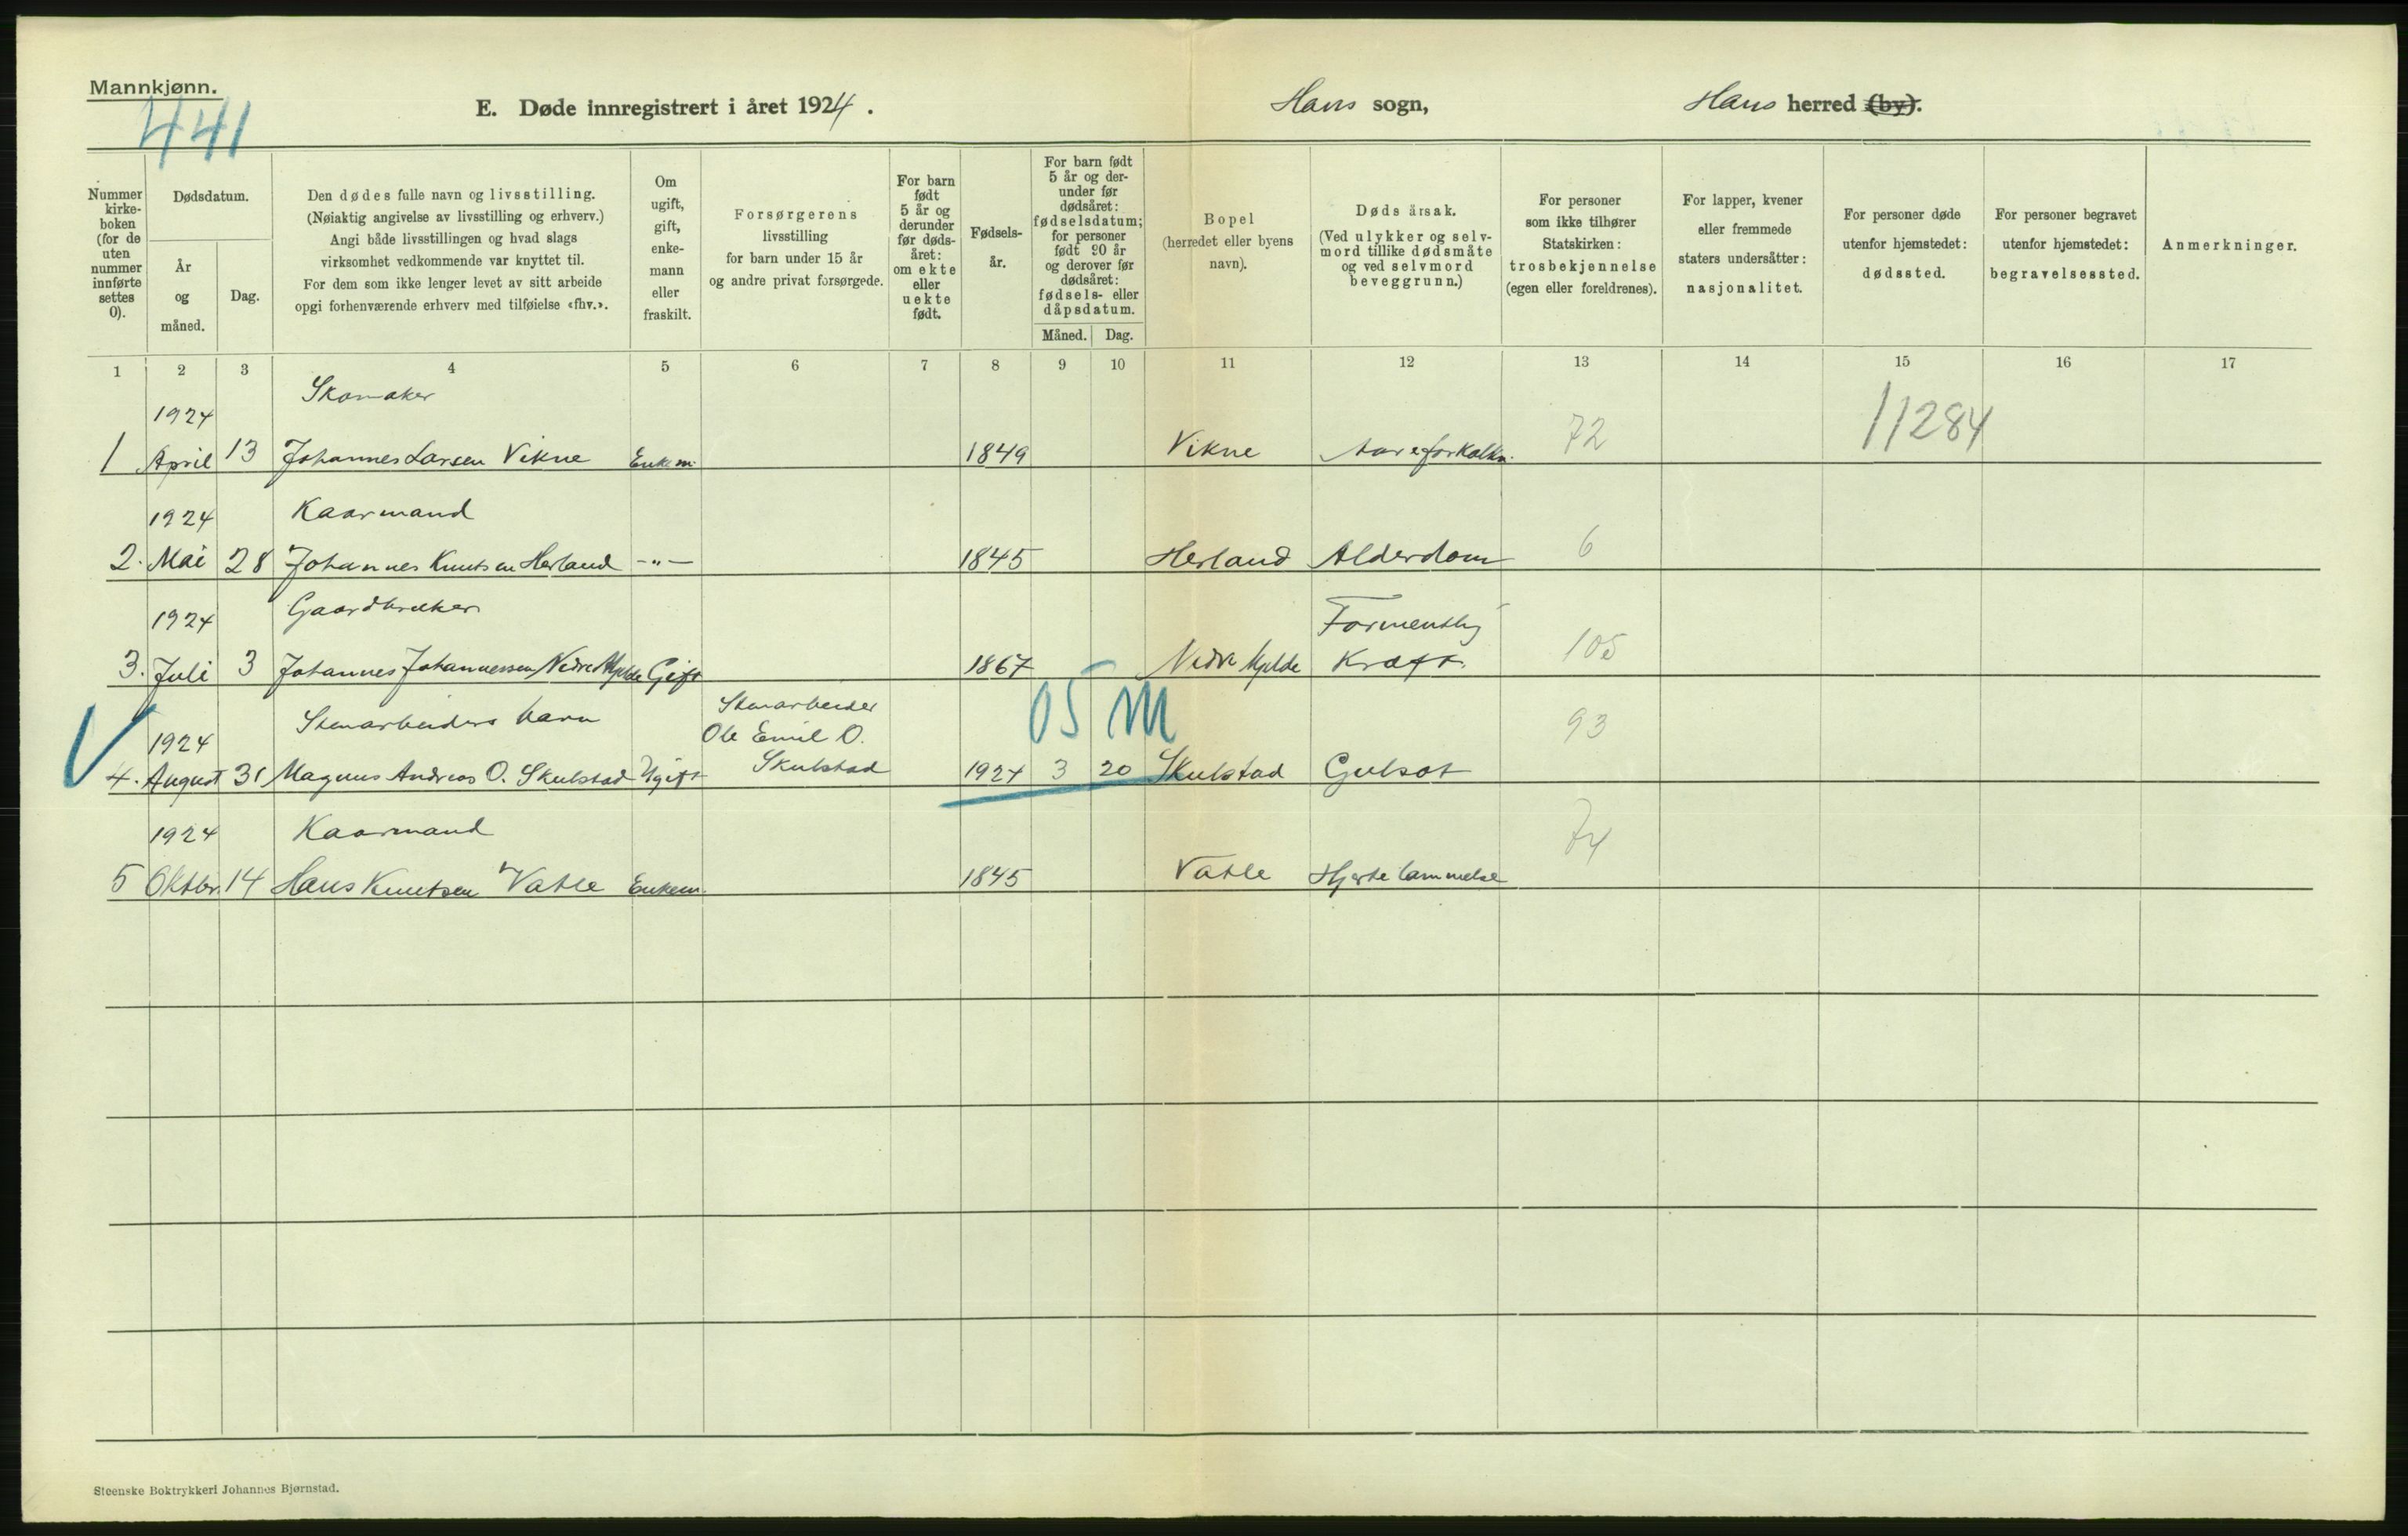 Mannkjønn.
441
E. Døde innregistrert i året 1924.
Haus sogn,
Haus herred (by).
Nummer
kirke-
boken
(for de
uten
nummer
innførte
settes
0).
Dødsdatum.
År
og
måned.
Dag.
Den dødes fulle navn og livsstilling.
(Nøiaktig angivelse av livsstilling og erhverv.)
Angi både livsstillingen og hvad slags
virksomhet vedkommende var knyttet til.
For dem som ikke lenger levet av sitt arbeide
opgi forhenværende erhverv med tilføielse «fhv.».
Om
ugift,
gift,
enke-
mann
eller
fraskilt.
Forsørgerens
livsstilling
for barn under 15 år
og andre privat forsørgede.
For barn
født
5 år og
derunder
før døds-
året:
om ekte
eller
uekte
født.
Fødsels-
år.
For barn født
5 år og der-
under før
dødsåret:
fødselsdatum;
for personer
født 90 år
og derover før
dødsåret:
fødsels- eller
dåpsdatum.
Måned.
Dag.
Bopel
(herredet eller byens
navn).
Døds årsak.
(Ved ulykker og selv-
mord tillike dødsmåte
og ved selvmord
beveggrunn.)
For personer
som ikke tilhører
Statskirken:
trosbekjennelse
(egen eller foreldrenes).
For lapper, kvener
eller fremmede
staters undersåtter:
nasjonalitet.
For personer døde
utenfor hjemstedet:
dødssted.
For personer begravet
utenfor hjemstedet:
begravelsessted.
Anmerkninger.
1 2 3 4 5 6 7 8 9 10 11 12 13 14 15 16 17
1924 Skomaker 72 11284
1 April 13 Johannes Larsen Vikne Enkem. 1849 Vikne Aareforkalkn.
1924 Kaarmand 6
2. Mai 28 Johannes Knutsen Herland -"- 1845 Herland Alderdom
1924 Gaardbruker Formentlig 105
3. Juli 3 Johannes Johannessen Nedre Mjelde Gift 1867 Nedre Mjelde Kræft.
Stenarbeiders barn Stenarbeider 05 M 93
1924 Ole Emil O.
4. August 31 Magnus Andreas O. Skulstad Ugift Skulstad 1924 3 20 Skulstad Gulsot
1924 Kaarmand 74
5 Oktbr. 14 Hans Knutsen Vatle Enkem. 1845 Vatle Hjertelammelse
Steenske Boktrykkeri Johannes Bjørnstad.